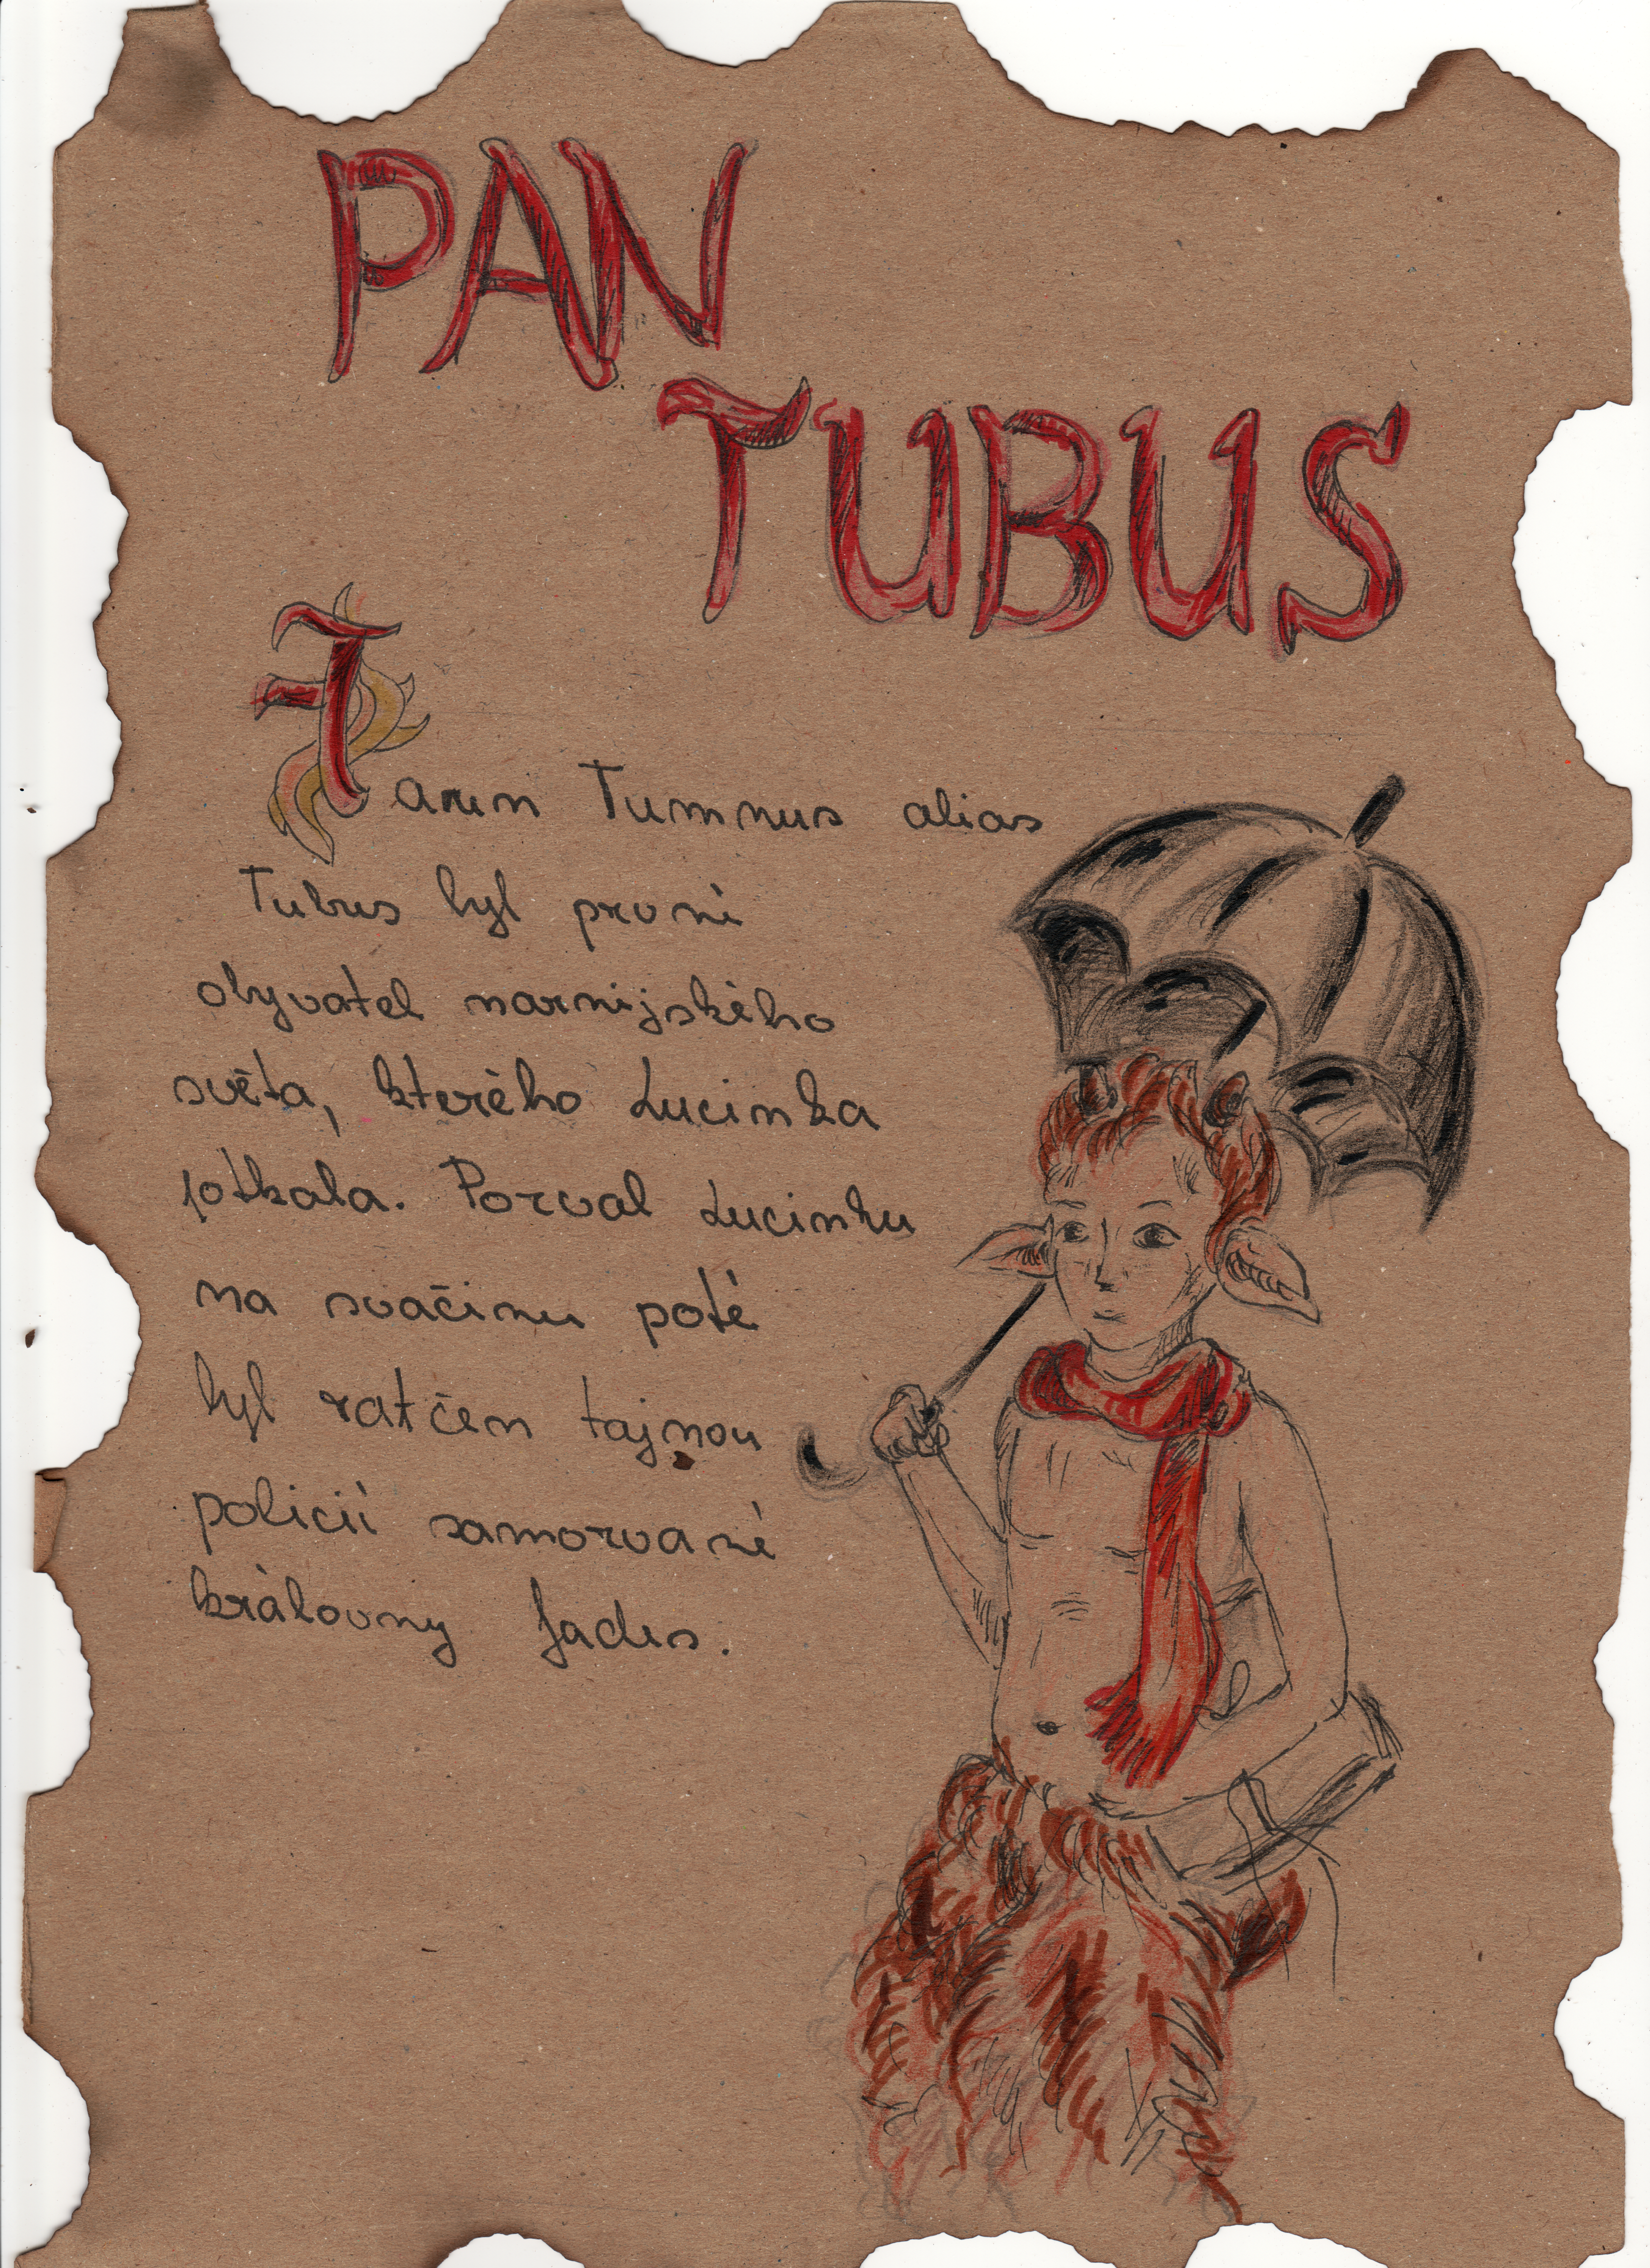 PAN
TUBUS
Faun Tumnus alias
Tubus byl první
obyvatel narnijského
světa, kterého Lucinka
potkala. Pozval Lucinku
na svačinu poté
byl zatčen tajnou
policií samozvané
královny Jadis.